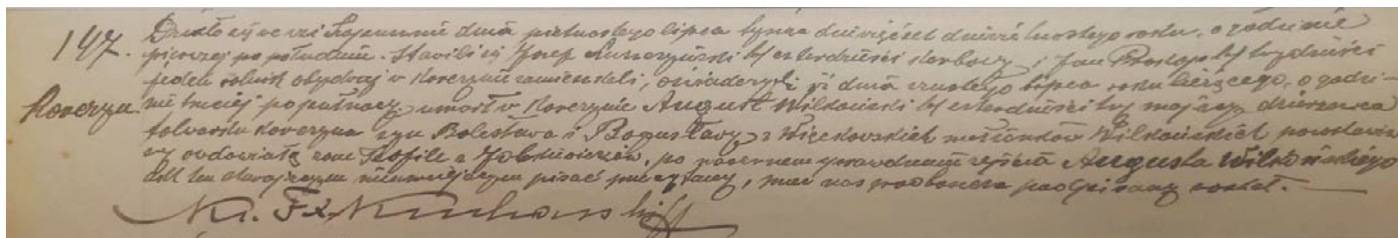 147. Działo się we wsi dnia piętnastego lipca tysiąc dziewięćset dziewiętnastego roku, o godzinie
pierwszej po południu. Stawili się Józef lat czterdzieści i Jan Prokop lat trzydzieści
jeden rolnik obydwaj w Koverzynie zamieszkali, i oświadczyli iż dnia czternastego lipca roku bieżącego, o godzi-
Koverzyn. nie trzeciej po północy umarł w Koverzynie August Wilkoński lat czterdzieści trzy mający dzierżawca
folwarku Koverzyna syn Bolesława i Bogusławy z Więckowskich małżonków Wilkońskich pozostawiw-
szy owdowiałą żonę Teofilę z po naocznem sprawdzeniu zejścia Augusta Wilkońskiego
akt ten stawającym nieumiejącym pisać przeczytany, przez nas podpisany został.
Ks. F.